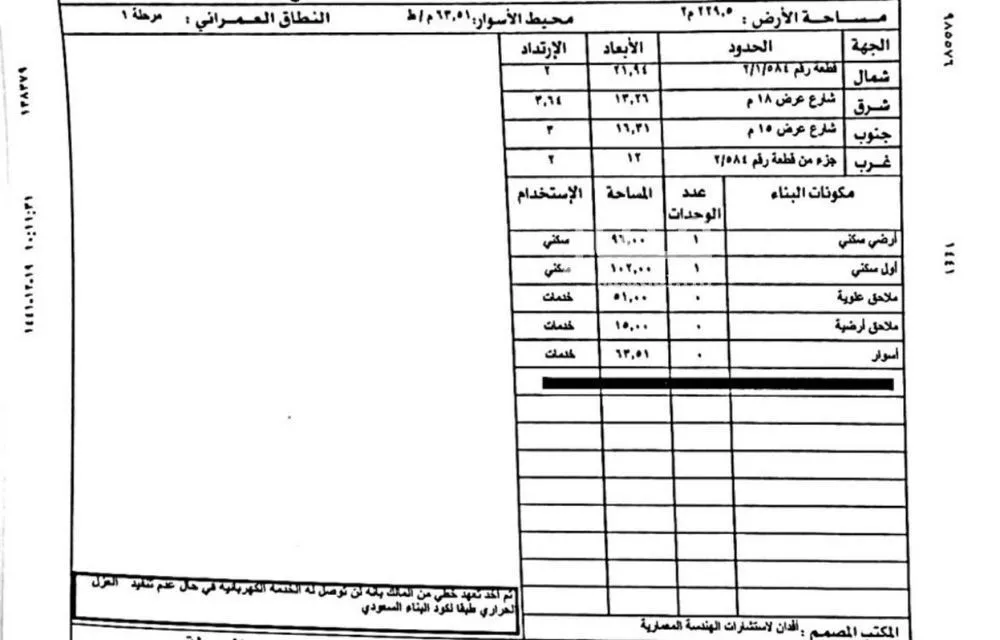 مساحة الأرض : ٢٢٩,٥ م٢ محيط الأسوار: ٦٣,٥١ م/ط النطاق العمراني : مرحلة ١
الجهة الحدود الأبعاد الإرتداد
شمال قطعة رقم ٢/١/٥٨٤ ٢١,٩٤ ٢
شرق شارع عرض ١٨ م ١٣,٢٦ ٣,٦٤
جنوب شارع عرض ١٥ م ١٦,٣١ ٣
غرب جزء من قطعة رقم ٢/٥٨٤ ١٢ ٢
مكونات البناء عدد الوحدات المساحة الإستخدام
أرضي سكني ١ ٩٦,٠٠ سكني
أول سكني ١ ١٠٢,٠٠ سكني
ملاحق علوية ٠ ٥١,٠٠ خدمات
ملاحق أرضية ٠ ١٥,٠٠ خدمات
أسوار ٠ ٦٣,٥١ خدمات
تم أخذ تعهد خطي من المالك بأنه لن توصل له الخدمة الكهربائية في حال عدم تنفيذ العزل
الحراري طبقا لكود البناء السعودي
المكتب المصمم : أفدان لاستشارات الهندسة المعمارية
٩٨٥٥٧٦
١٤٤١
١٣٨٣٧٩